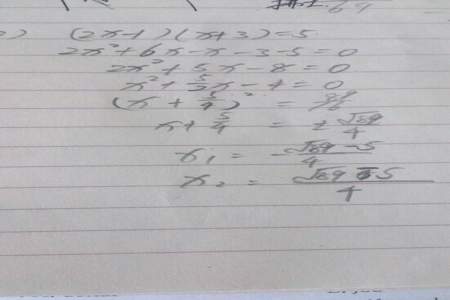 2) (2x-1)(x+3)=5
2x²+6x-x-3-5=0
2x²+5x-8=0
x²+5/2x-4=0
(x+5/4)²=89/16
x+5/4=±√89/4
x₁=-√89-5/4
x₂=√89-5/4